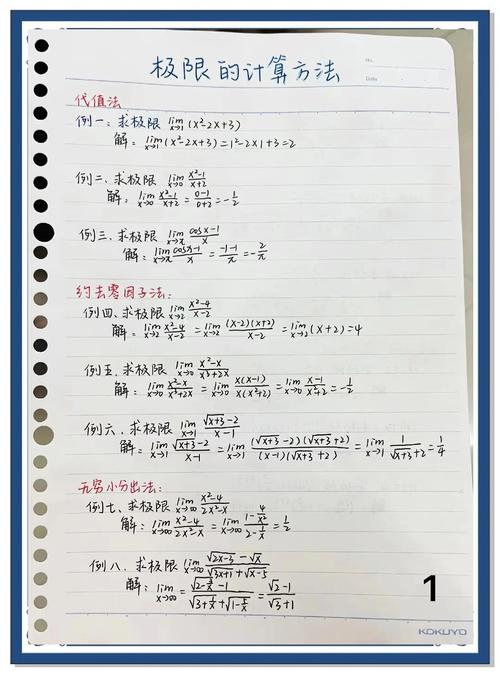 极限的计算方法
No.
Date
代值法
例一：求极限 lim x→1 (x²-2x+3)
解：lim x→1 (x²-2x+3)=1²-2×1+3=2
例二、求极限 lim x→0 (x²-1)/(x+2)
解：lim x→0 (x²-1)/(x+2) = (0-1)/(0+2) = -1/2
例三、求极限 lim x→π (cosx-1)/x
解：lim x→π (cosx-1)/x = (-1-1)/π = -2/π
约去零因子法：
例四、求极限 lim x→2 (x²-4)/(x-2)
解：lim x→2 (x²-4)/(x-2) = lim x→2 (x-2)(x+2)/(x-2) = lim x→2 (x+2)=4
例五、求极限 lim x→0 (x²-x)/(x³+2x)
解：lim x→0 (x²-x)/(x³+2x) = lim x→0 x(x-1)/x(x²+2) = lim x→0 (x-1)/(x²+2) = -1/2
例六、求极限 lim x→1 (√(x+3)-2)/(x-1)
解：lim x→1 (√(x+3)-2)/(x-1) = lim x→1 (√(x+3)-2)(√(x+3)+2)/(x-1)(√(x+3)+2) = lim x→1 1/(√(x+3)+2) = 1/4
无穷小分出法：
例七、求极限 lim x→∞ (x²-4)/(2x²-x)
解：lim x→∞ (x²-4)/(2x²-x) = lim x→∞ (1-4/x²)/(2-1/x) = 1/2
例八、求极限 lim x→∞ (√(2x-3)-√x)/(√(3x+1)+√(x-5))
解：lim x→∞ (√(2-3/x)-1)/(√(3+1/x)+√(1-5/x)) = (√2-1)/(√3+1)
1
KOKUYO